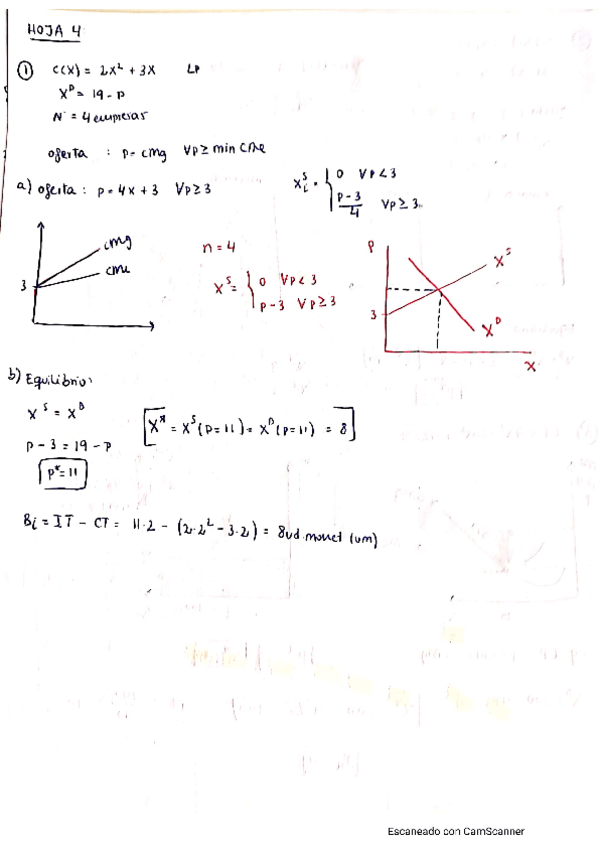 HOJA 4
① C(X) = 2X² + 3X LP
X^D = 19 - P
N = 4 empresas
oferta : P = CMg ∀p ≥ min CMe
a) oferta : P = 4X + 3 ∀P ≥ 3
X_i^S = { 0 ∀P < 3
P-3/4 ∀P ≥ 3
CMg
CMe
3
n = 4
X^S = { 0 ∀P < 3
P - 3 ∀P ≥ 3
P
X^S
3
X^D
X
b) Equilibrio:
X^S = X^D
P - 3 = 19 - P
P* = 11
[X* = X^S (P = 11) = X^D (P = 11) = 8]
B_i = IT - CT = 11·2 - (2·2² - 3·2) = 8 ud. monet (um)
Escaneado con CamScanner